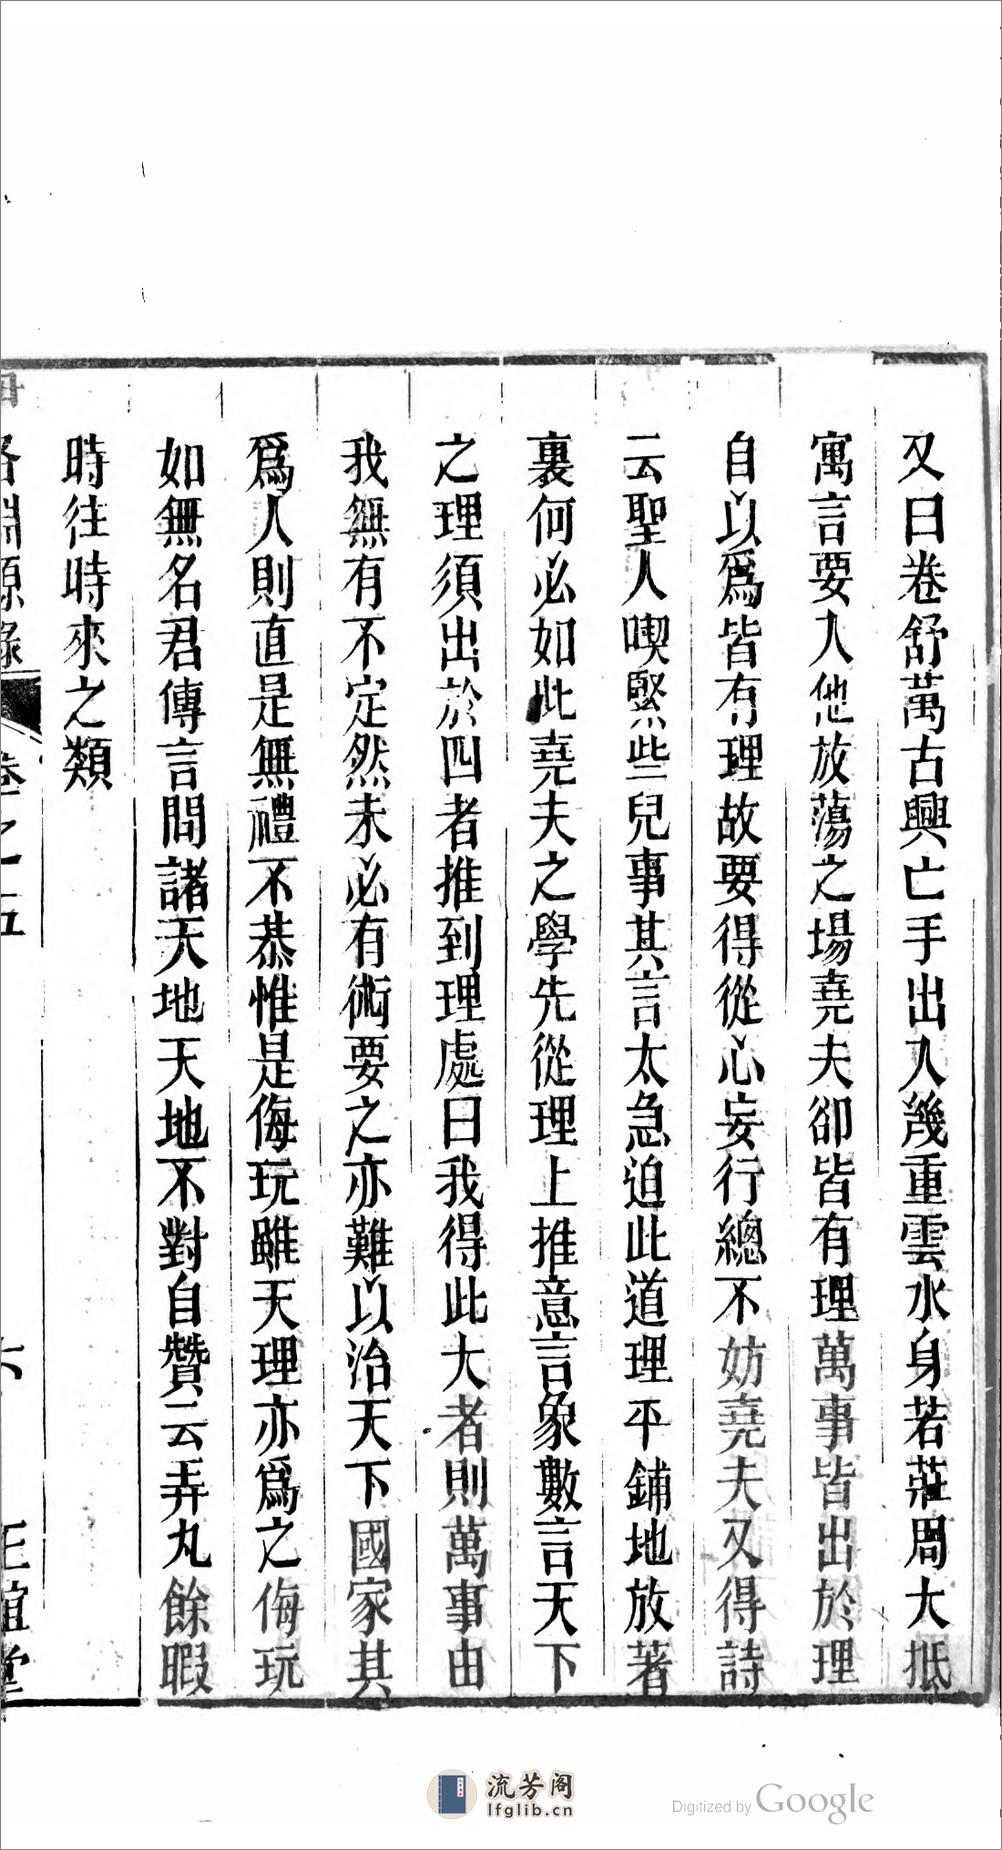 又曰卷舒萬古興亡手出入幾重雲水身若莊周大抵
寓言要入他放蕩之場堯夫卻皆有理萬事皆出於理
自以爲皆有理故要得從心妄行總不妨堯夫又得詩
云聖人喫緊些兒事其言太急迫此道理平鋪地放著
裏何必如此堯夫之學先從理上推意言象數言天下
之理須出於四者推到理處曰我得此大者則萬事由
我無有不定然未必有術要之亦難以治天下國家其
爲人則直是無禮不恭惟是侮玩雖天理亦爲之侮玩
如無名君傳言問諸天地天地不對自贊云弄丸餘暇
時往時來之類
洛淵源錄 卷之五 六 正誼堂
流芳阁
lfglib.cn
Digitized by Google